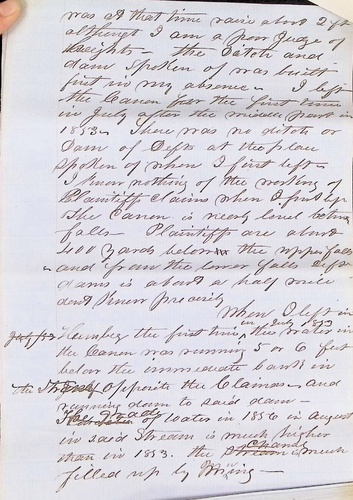 was at that time raise about 2 ft
although I am a poor Judge of
Heights - the Ditch and
dam spoken of was built
first in my absence - I left
the Canon for the first time
in July after the middle part in
1853 - There was no ditch or
Dam of Defts at the place
spoken of when I first left -
I know nothing of the working of
Plaintiffs claims when I first left
The Canon is nearly level below
falls - Plaintiff are about
400 yards below the upper falls
- and from the lower falls Defts
dams is about a half mile
dont Know precisely
When I left in
the first time in July 1853 the water in
the Canon was running 5 or 6 feet
below the immediate bank in
the opposite the Claims - and
running down to said dam -
The of water in 1856 in August
in said Stream is much higher
than in 1853. the is much
filled up by Mining -